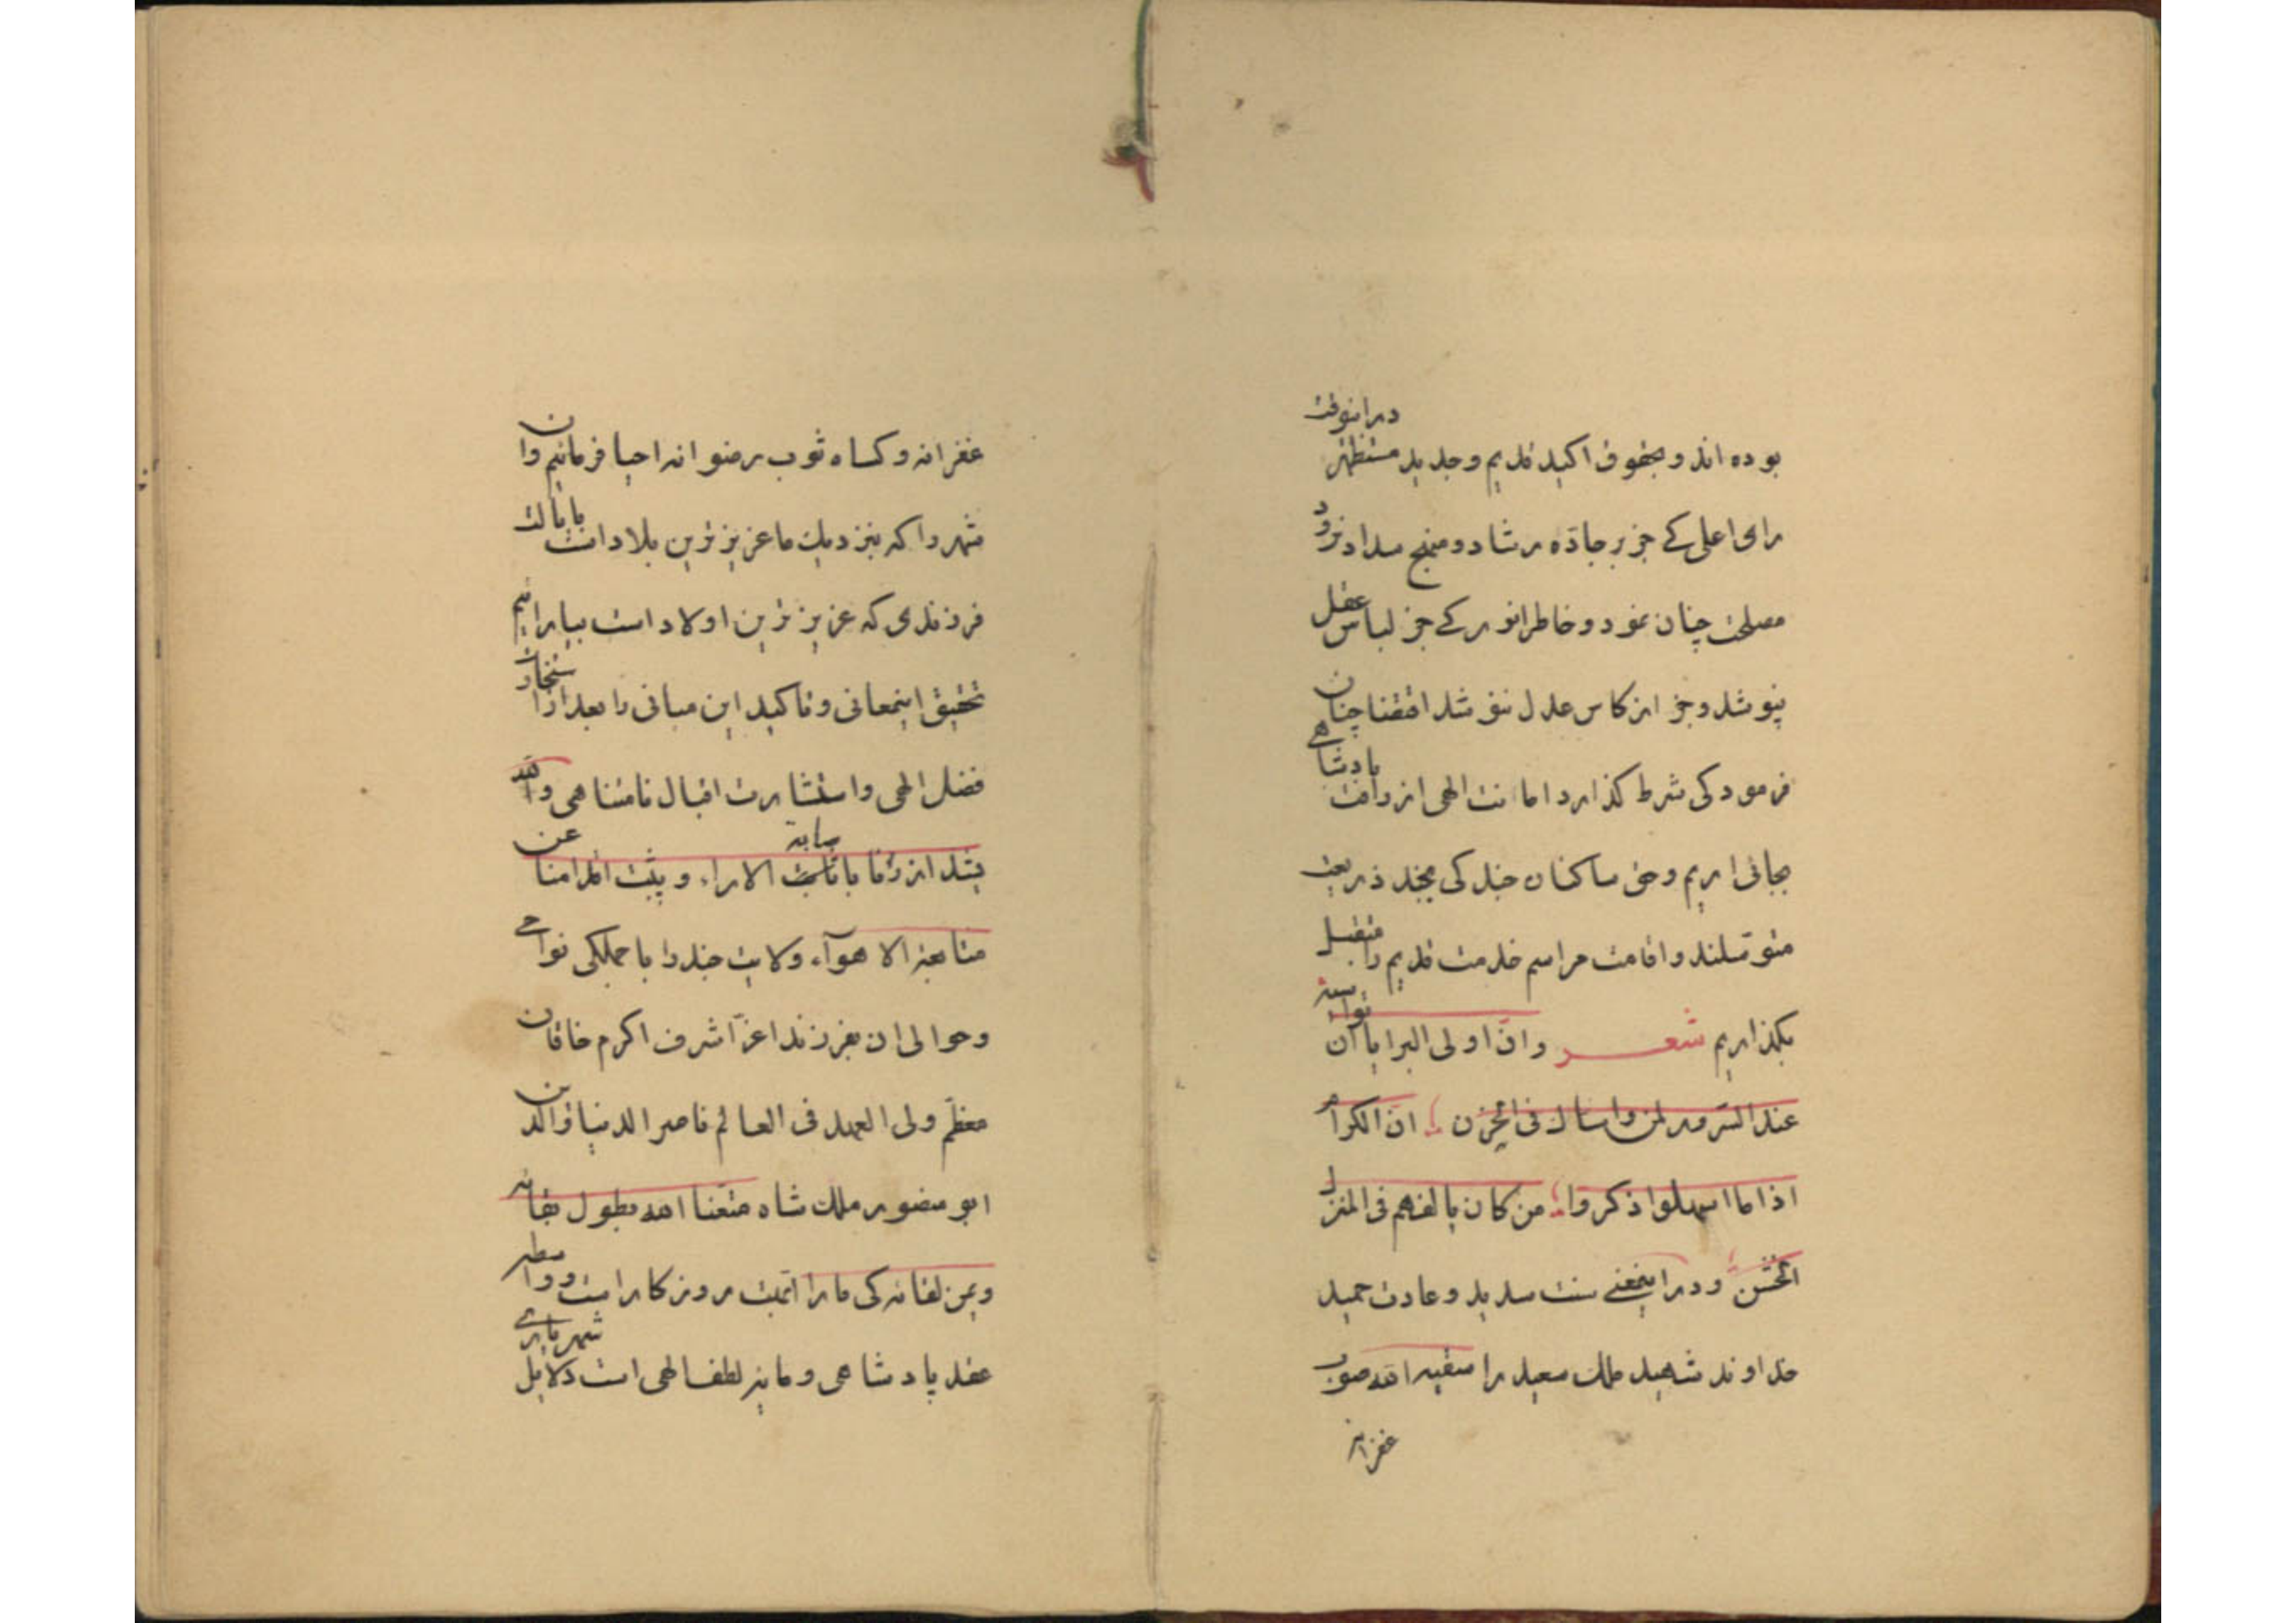 بوده اند و بحقوق اکید قدیم و جدید مستظهر درانوقت
رای اعلی کے جز بر جادّه رشاد و منهج سداد نرود
مصلحت چنان نمود و خاطر انور کے جز لباس عقل
نپوشد و جز از کاس عدل ننوشد اقتضا چنان
فرمود کی شرط گذارد امانت الهی از رافت پادشاهے
بجای اریم و حق ساکنان جند کی بچند ذریعت
متوسّلند و اقامت مراسم خدمت قدیم را متقبل
بگذاریم شعر وانّ اولی البرایا ان تواسیه
عند السّرور لمن واساك فی الحزن انّ الکرام
اذا ما اسهلوا ذکروا من کان یالفهم فی المنزل
الخشن و درا ینمعنے سنت سدید و عادت حمید
خداوند شهید ملك سعید را سقیه الله صوب
غفرانه
غفرانه و کساه ثوب رضوانه احیا فرمائیم وان
شهر را که بنزدیك ما عزیزترین بلاد است بایالت
فرزندی که عزیزترین اولاد است بیاراییم
تحقیق اینمعانی و تاکید این مبانی را بعد از استخارت
فضل الهی و استشارت اقبال نامتناهی والله
الاراء و یثبت اقدامنا عن
متابعة الاهوآء ولایت جند را با جملگی نواحے
و حوالی ان بفرزند اعزّ اشرف اکرم خاقان
معظّم ولی العهد فی العالم ناصر الدنیا والدین
ابو منصور ملك شاه متّعنا الله بطول بقائه
و یمن لقائه کی ما را روزگار است و واسطه
عقد پادشاهی و مایهٔ لطف الهی است دلایل شهریارے